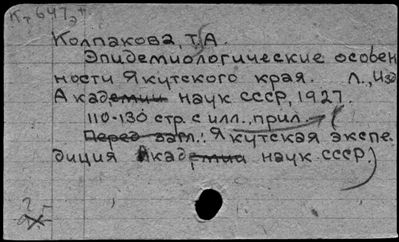 Колпакова, Т.А.
Эпидемиологические особен
ности Якутского края. Л., Изд
Академии наук СССР, 1927.
110-130 стр. с илл., прил.
Перед загл.: Якутская экспе
диция Академия наук СССР.)